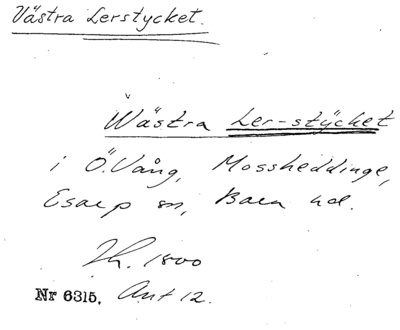 Västra Lerstycket.
Wästra Ler-stÿcket
i Ö. Vång, Mossheddinge,
Esarp sn, Bara hd.
Th. 1800
Nr 6315. Akt 12.